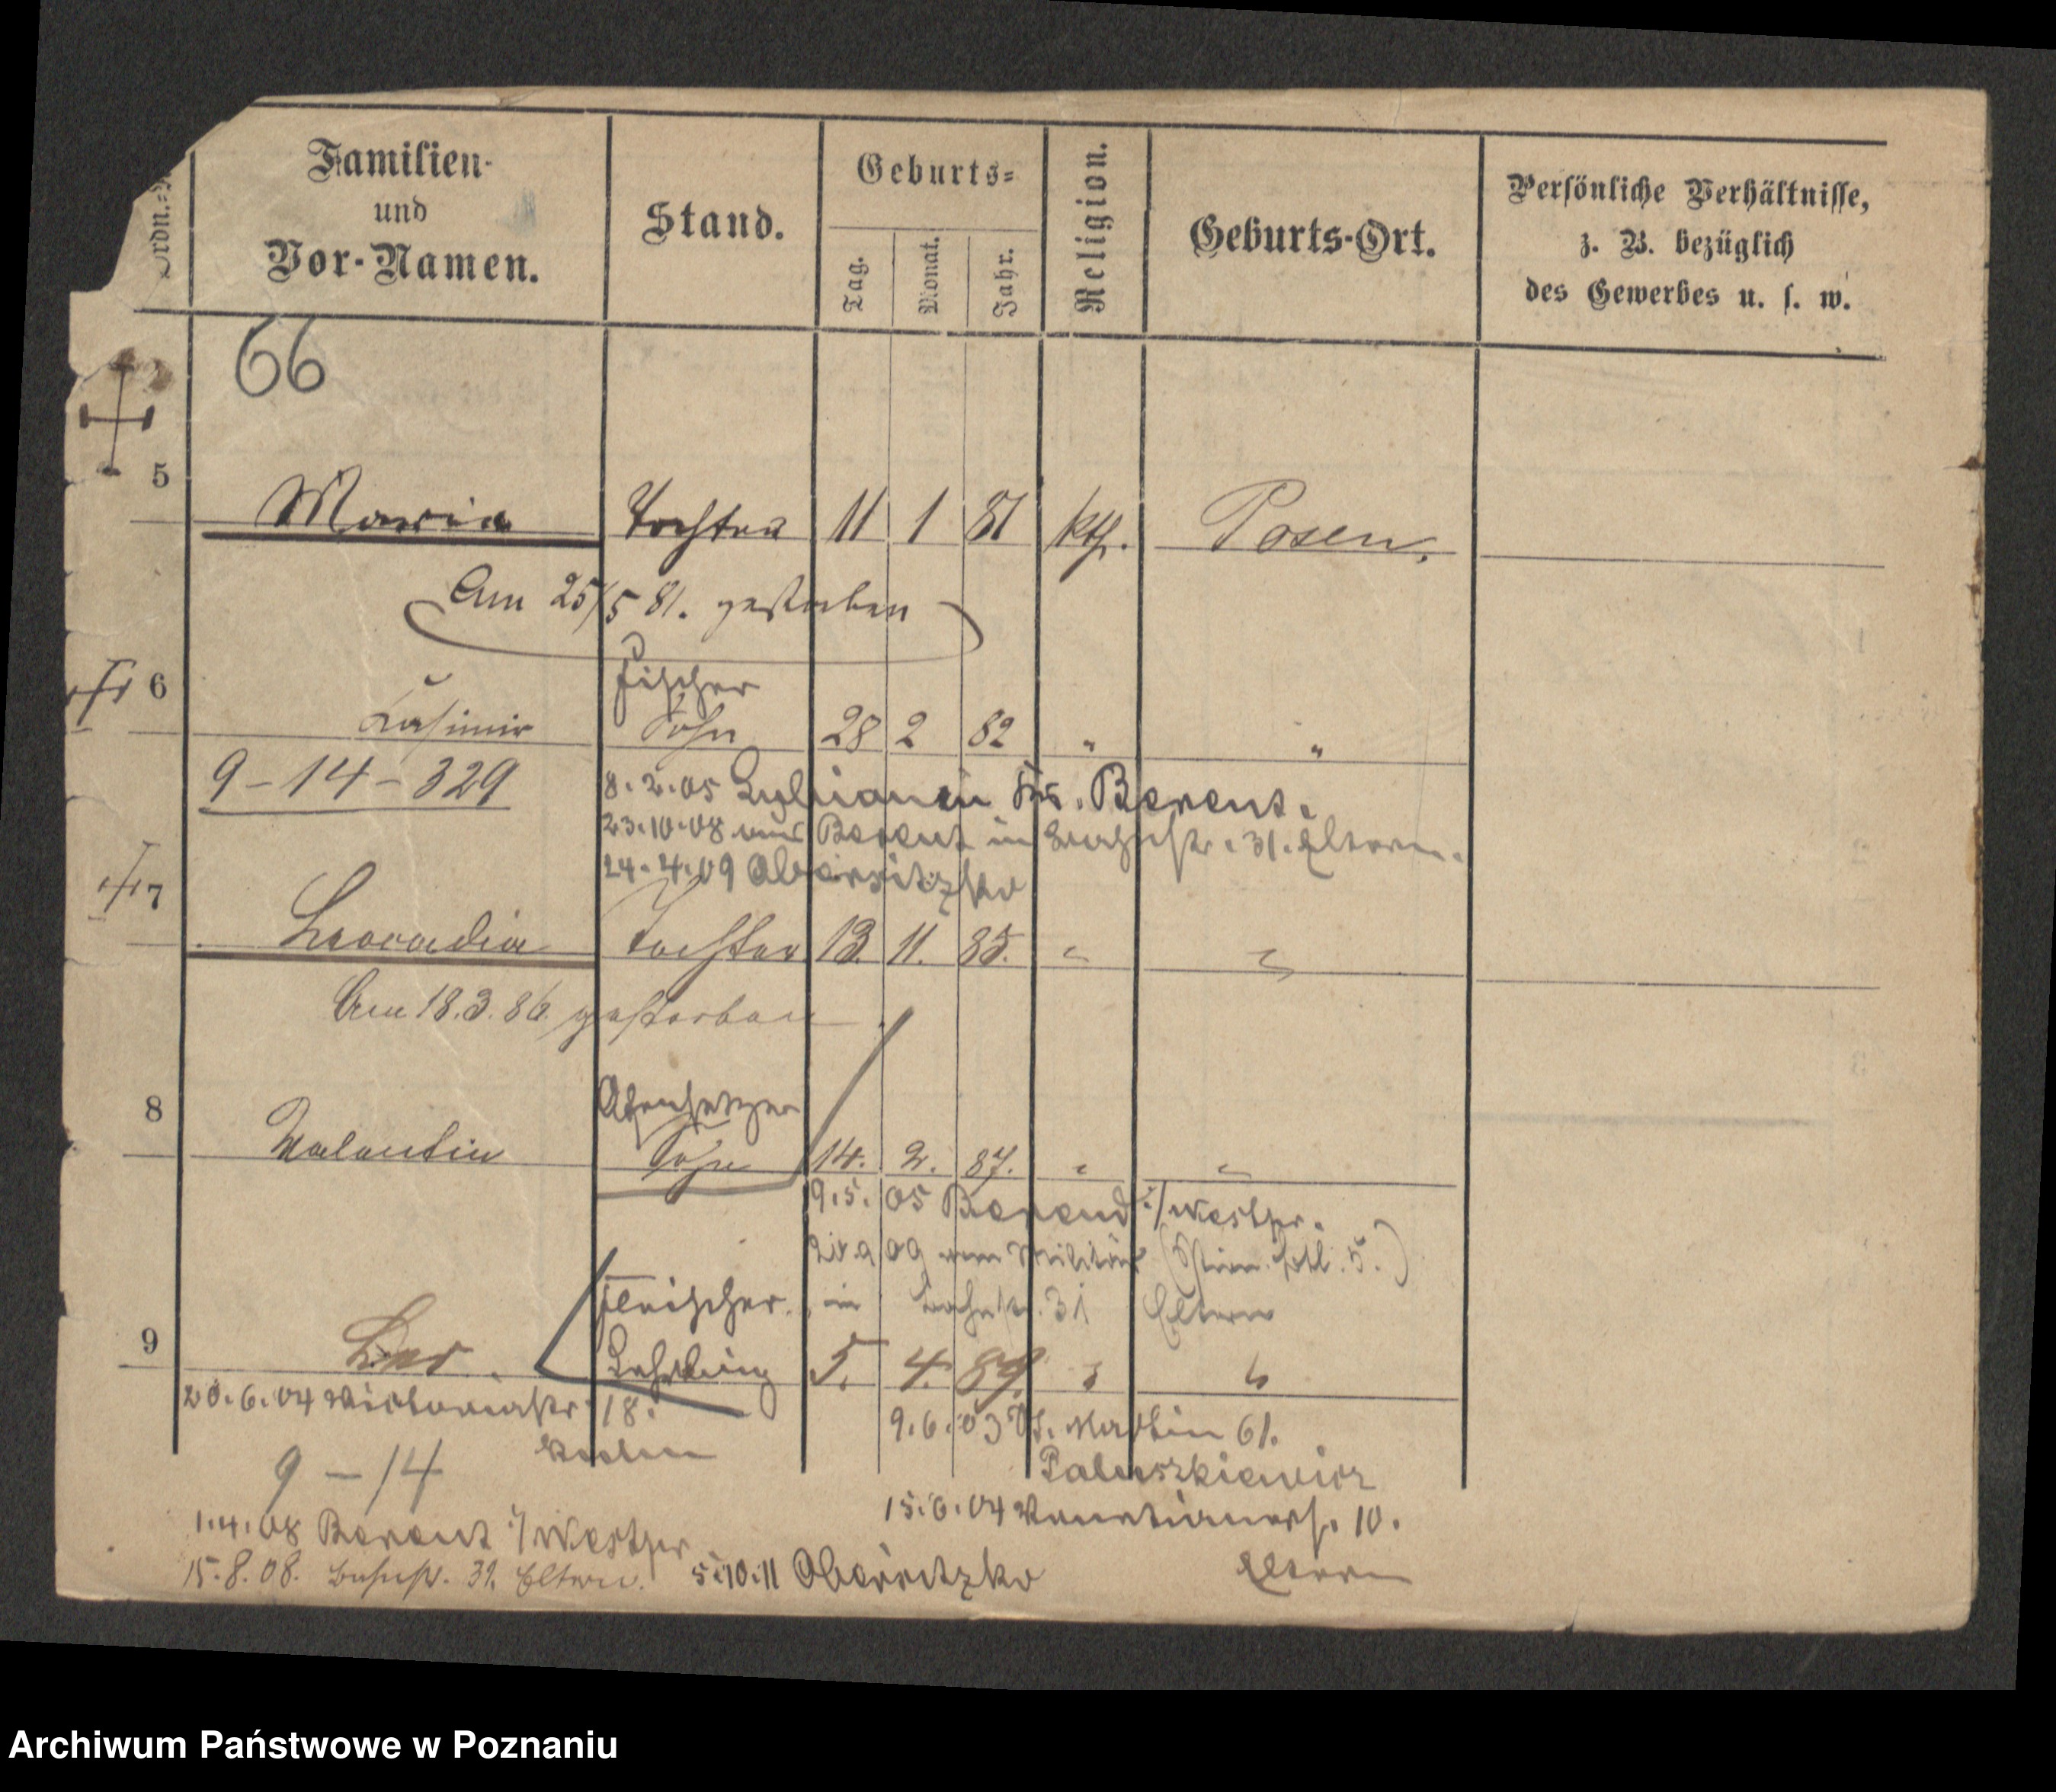 Ordn.-
Familien-
und
Vor-Namen.
Stand.
Geburts-
Tag.
Monat.
Jahr.
Religion.
Geburts-Ort.
Persönliche Verhältnisse,
z. B. bezüglich
des Gewerbes u. s. w.
66
5 Maria Tochter 11 1 81 kth. Posen.
Am 25/5 81. gestorben
Fischer
6 Casimir Sohn 28 2 82 " "
9-14-329
8.2.05 Berent.
23.10.08 Berent in 31. Eltern.
24.4.09 Obersitzko
7 Leocadia Tochter 13. 11. 85. " "
Am 18.3.86 gestorben
Ofensetzer
8 Valentin Sohn 14. 2. 87. " "
9.5.05 Berend i/Westpr.
09 vom Militär
Fleischer in 31 Eltern
9 Leo Lehrling 5. 4. 89. " "
20.6.04 Victoriastr 18.
9.6.03 St. Martin 61.
9-14
Paluszkiewicz
15.6.04 10.
1.4.08 Berent i/Westpr.
Eltern
15.8.08. Bahnstr. 31. Eltern. 5.10.11 Obersitzko
Archiwum Państwowe w Poznaniu